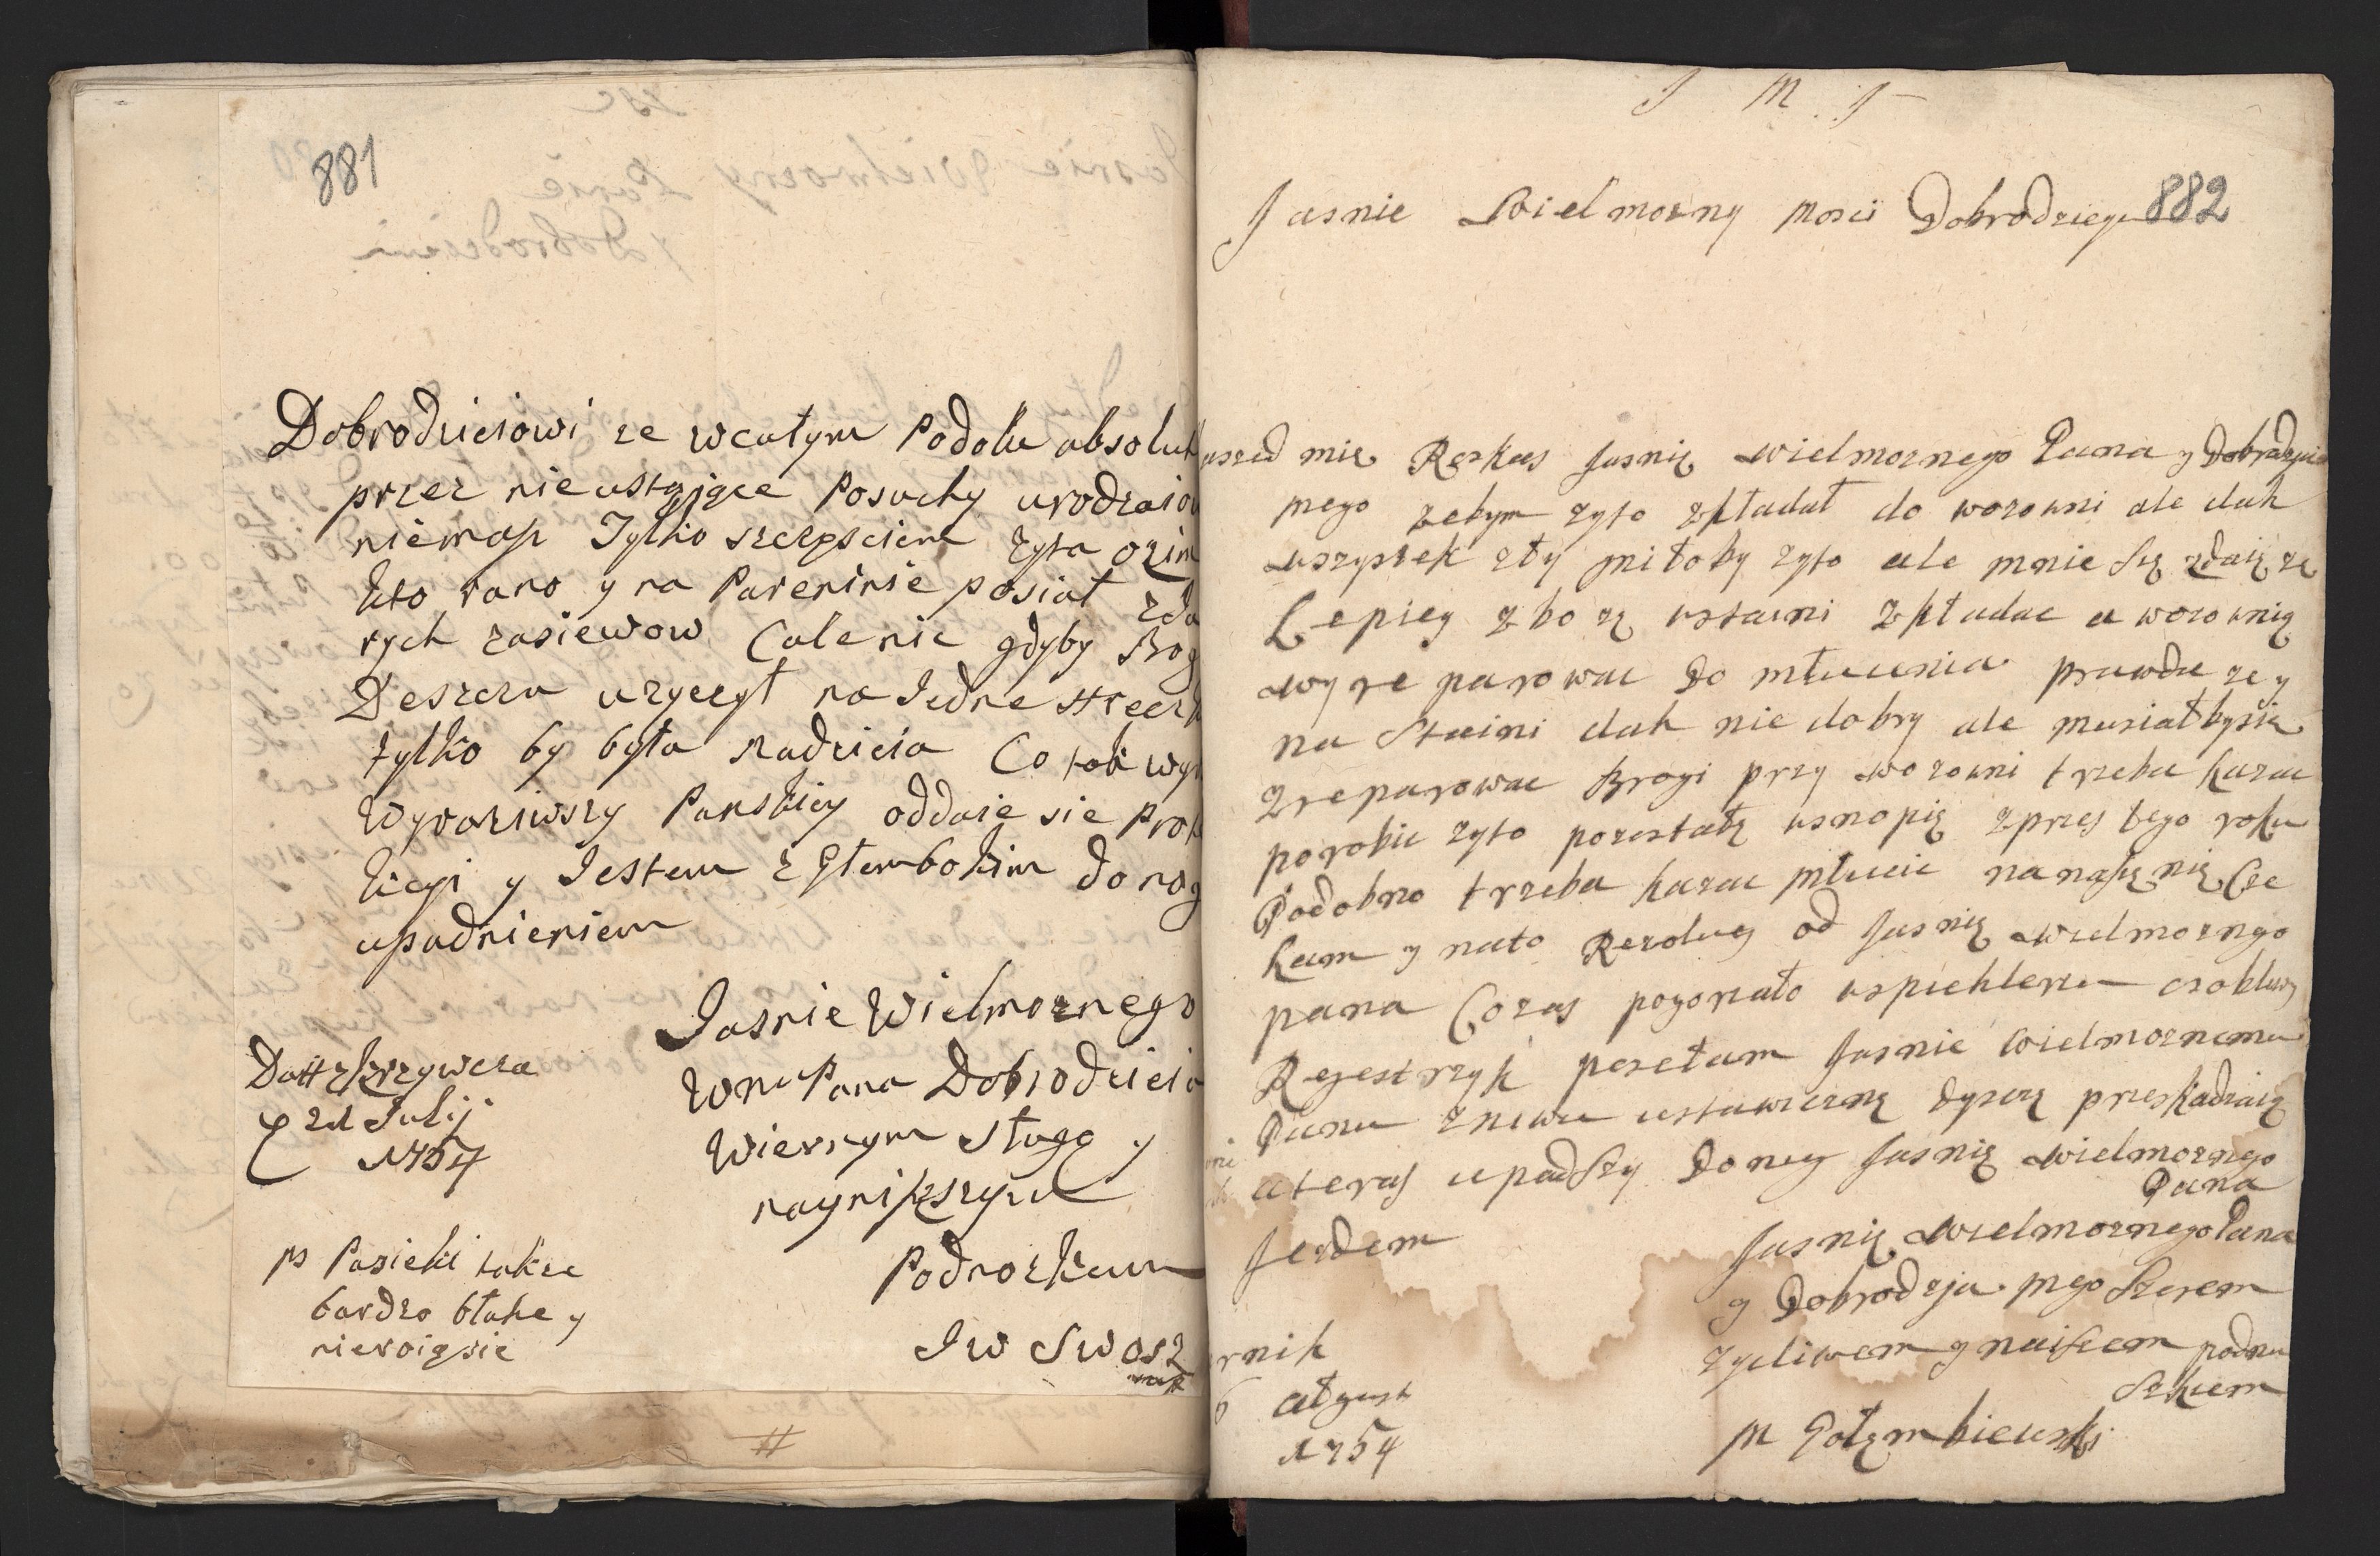 881
Dobrodzieiowi ze wcałym Podolu absolut
przez nieustaiące Posuchy urodzaiow
niemasz Tylko szczęściem zyta ozim
kto rano y na Pareninie posiał
rych zasiewow Cale nic gdyby Bog
Deszczu uzyczył na Jedne
tylko by była nadzieia Co tak
Wyraziwszy Panskiey oddaie sie Prote
kcyi y Jestem z Głembokim do nog
upadnieniem
Jasnie Wielmoznego
Wm Pana Dobrodzieia
Wiernym sługą y
nayniszszym
Podnozkiem
J W Swosz
Datt z Krzywcza
21 Julij
1754
ps Pasieki takze
bardzo błahe y
nieroiąsie
#
J M J
882
Jasnie Wielmozny Mosci Dobrodzieyu
uszed mię Roskas Jasnię wielmoznego Pana y Dobrodzieia
mego zebym zyto zkładał do wozowni ale dah
wszystek zły miłoby zyto ale mnie Się zdaię ze
Lepiey zbozę wstaini zkładac a wozownię
wyreparowac do młucenia prawda ze y
na Staini dah nie dobry ale musiałbysie
zreparowac Brogi przy wozowni trzeba kazac
porobic zyto pozostałę wsnopię zprzes tego roku
Podobno trzeba kazac młucic nanasię nię Cze
kam y nato Rezolucy od Jasnię wielmozngo
pana Cozas pozostało wspichlerzu osobliwy
Rejestrzyk posełam Jasnie wielmoznemu
Panu zniwu ustawicznę dyszczę przeskadzaią
a teras upadszy donog Jasnię wielmozngo
Pana
Jezdem
Jasnię wielmoznego Pana
y Dobrodzja mego Szerem
zycliwem y naiscem podnu
Szkiem
M Gołęmbiewski
rnik
6 ałgust
1754